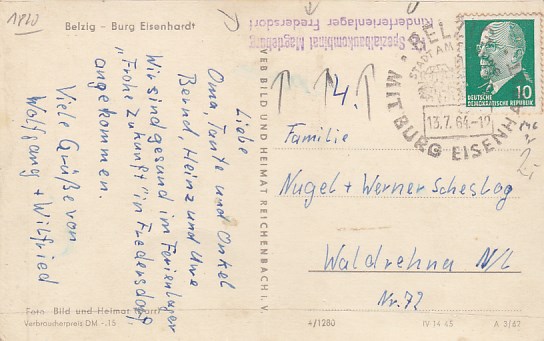 1820
Belzig - Burg Eisenhardt
Liebe
Oma, Tante und Onkel
Bernd, Heinz und Uwe
Wir sind gesund im Ferienlager
„Frohe Zukunft" in Fredersdorf
angekommen.
Viele Grüße von
Wolfgang + Wilfried
Foto: Bild und Heimat
Verbraucherpreis DM -,15
VEB BILD UND HEIMAT REICHENBACH I. V.
Spezialbaukombinat Magdeburg
Kinderferienlager Fredersdorf
BELZIG
STADT AM
13.7.64.-19
MIT BURG EISENHARDT
DEUTSCHE
DEMOKRATISCHE REPUBLIK
10
4.
2,-
Familie
Nugel + Werner Scheslog
Waldrehna N/L
Nr. 72
4/1280
IV 14 45
A 3/62